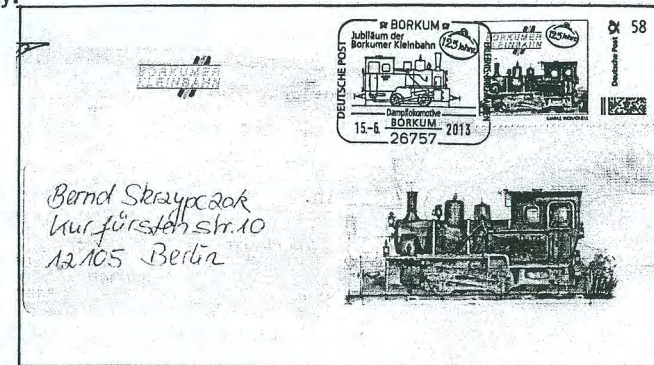 y.
BORKUMER
KLEINBAHN
BORKUM
Jubiläum der
Borkumer Kleinbahn
125 Jahre
DEUTSCHE POST
Dampflokomotive
BORKUM
15.-6. 2013
26757
BORKUMER
KLEINBAHN
125 Jahre
ERLEBNIS
MARKE INDIVIDUELL
Deutsche Post
58
Bernd Skrzypczak
Kurfürstenstr. 10
12105 Berlin